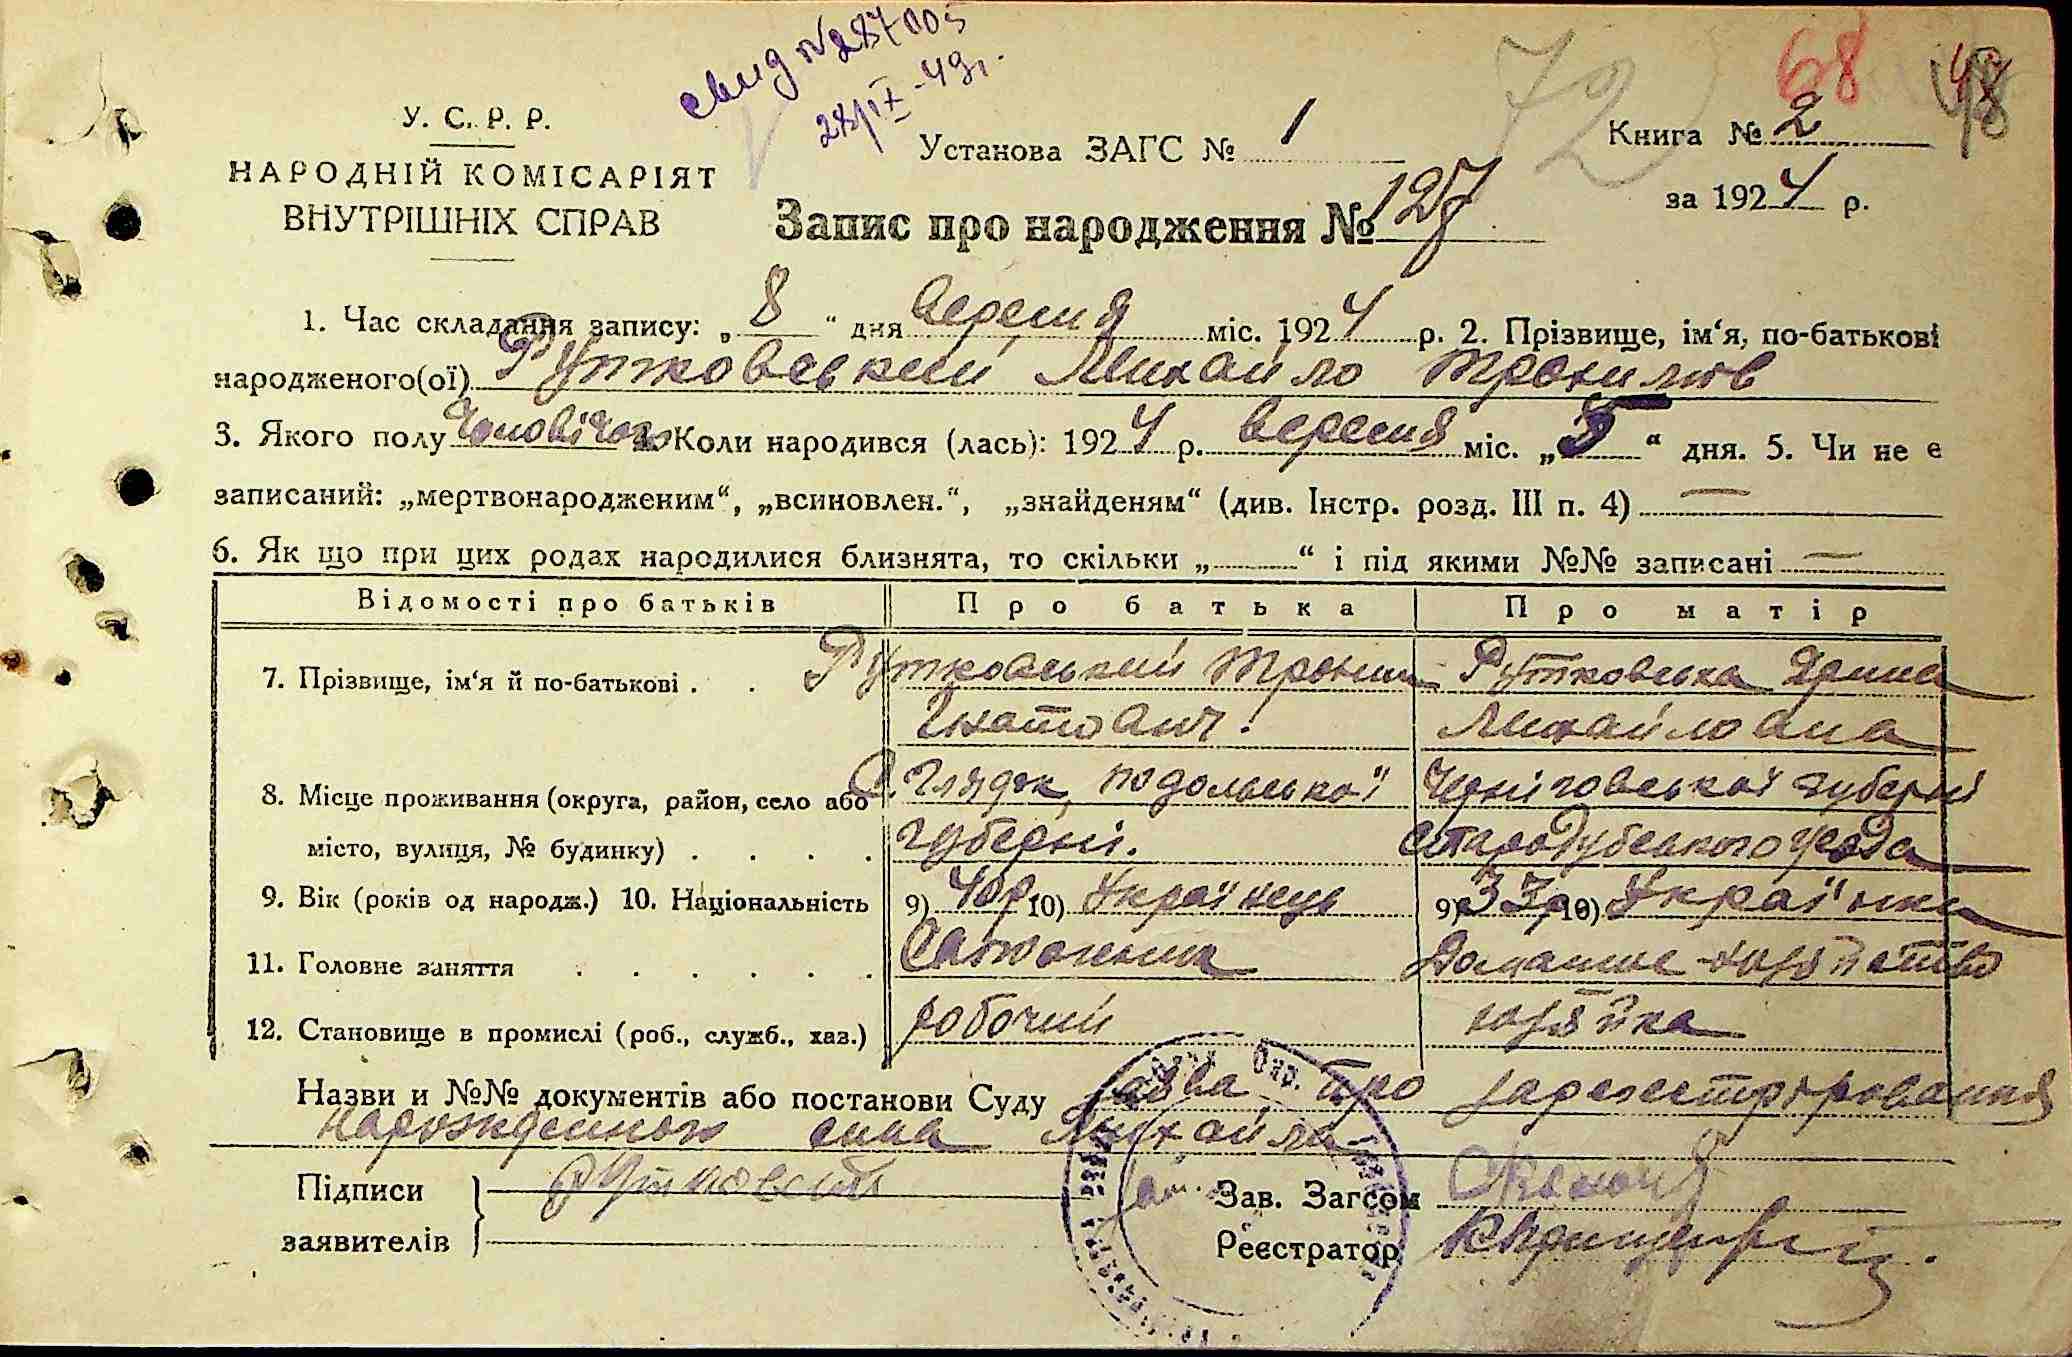 свид N 287005
28/IX-49г.
72
68
48
У. С. Р. Р.
НАРОДНІЙ КОМІСАРІЯТ
ВНУТРІШНІХ СПРАВ
Установа ЗАГС № 1
Книга № 2
за 1924 р.
Запис про народження № 127
1. Час складання запису: „8“ дня вересня міс. 1924 р. 2. Прізвище, ім‘я, по-батькові
народженого(ої) Рутковський Михайло Трохимов
3. Якого полу Чоловічого 4. Коли народився (лась): 1924 р. вересня міс. „5“ дня. 5. Чи не є
записаний: „мертвонародженим“, „всиновлен.“, „знайденям“ (див. Інстр. розд. III п. 4) —
6. Як що при цих родах народилися близнята, то скільки „ “ і під якими №№ записані —
Відомості про батьків Про батька Про матір
7. Прізвище, ім‘я й по-батькові . . Рутковський Трохим Рутковська Ярина
Гнатович. Михайловна
8. Місце проживання (округа, район, село або С. подольської Черніговської губерні
місто, вулиця, № будинку) . . . . губерні. Стародубського уезда
9. Вік (років од народж.) 10. Національність 9) 40р 10) Українець 9) 33р 10) Українка
11. Головне заняття . . . . . . Сапожник Домашнє хазяйство
12. Становище в промислі (роб., служб., хаз.) робочий хазяйка
Назви и №№ документів або постанови Суду Заява про зареєстрировання
народженного сина Михайла
Підписи Рутковский Зав. Загсом
заявителів Реєстратор